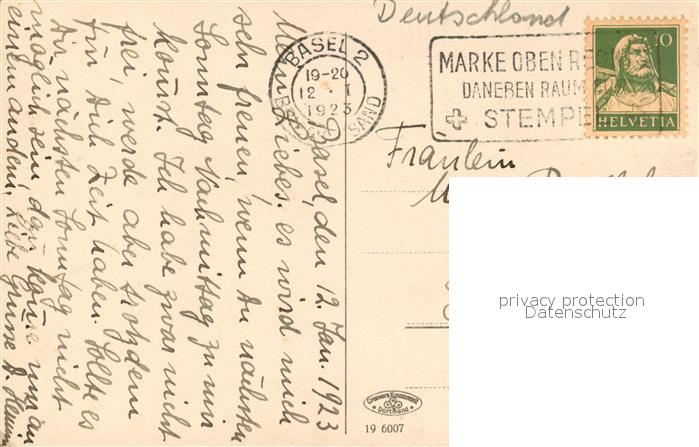 Basel, den 12. Jan. 1923
Mein Liebes. es wird mich
sehr freuen, wenn Du nächsten
Sonntag Nachmittag zu mir
komst. Ich habe zwar nicht
frei, werde aber trotzdem
für Dich Zeit haben. Sollte es
Dir nächsten Sonntag nicht
möglich sein, dan komme
einem andern. Liebe Grüsse D.
Deutschland
BASEL 2
19-20
12. I
1923
MARKE OBEN RE
DANEBEN RAUM
STEMPE
10
HELVETIA
Fräulein
privacy protection
Datenschutz
19 6007